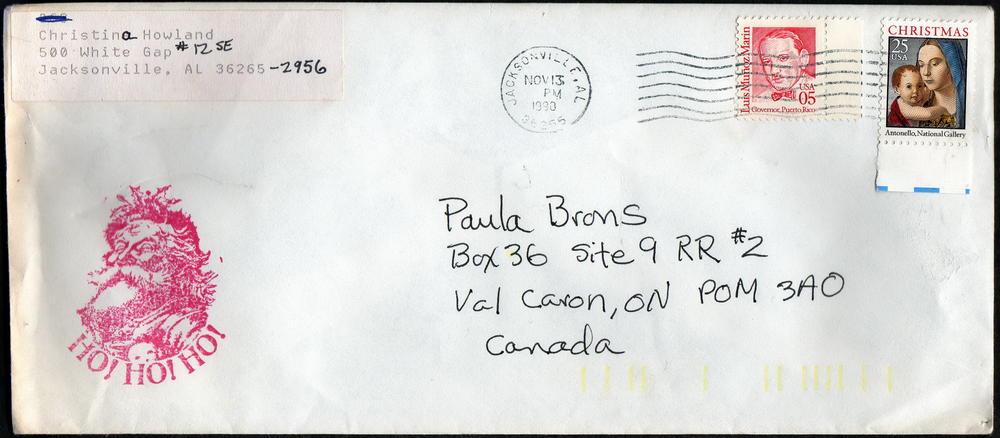 Christina Howland
500 White Gap #12 SE
Jacksonville, AL 36265-2956
JACKSONVILLE, AL
NOV 13
PM
1990
36265
Luis Muñoz Marín
USA
05
Governor, Puerto Rico
CHRISTMAS
25
USA
Antonello, National Gallery
Paula Brons
Box 36 Site 9 RR #2
Val Caron, ON P0M 3A0
Canada
HO! HO! HO!